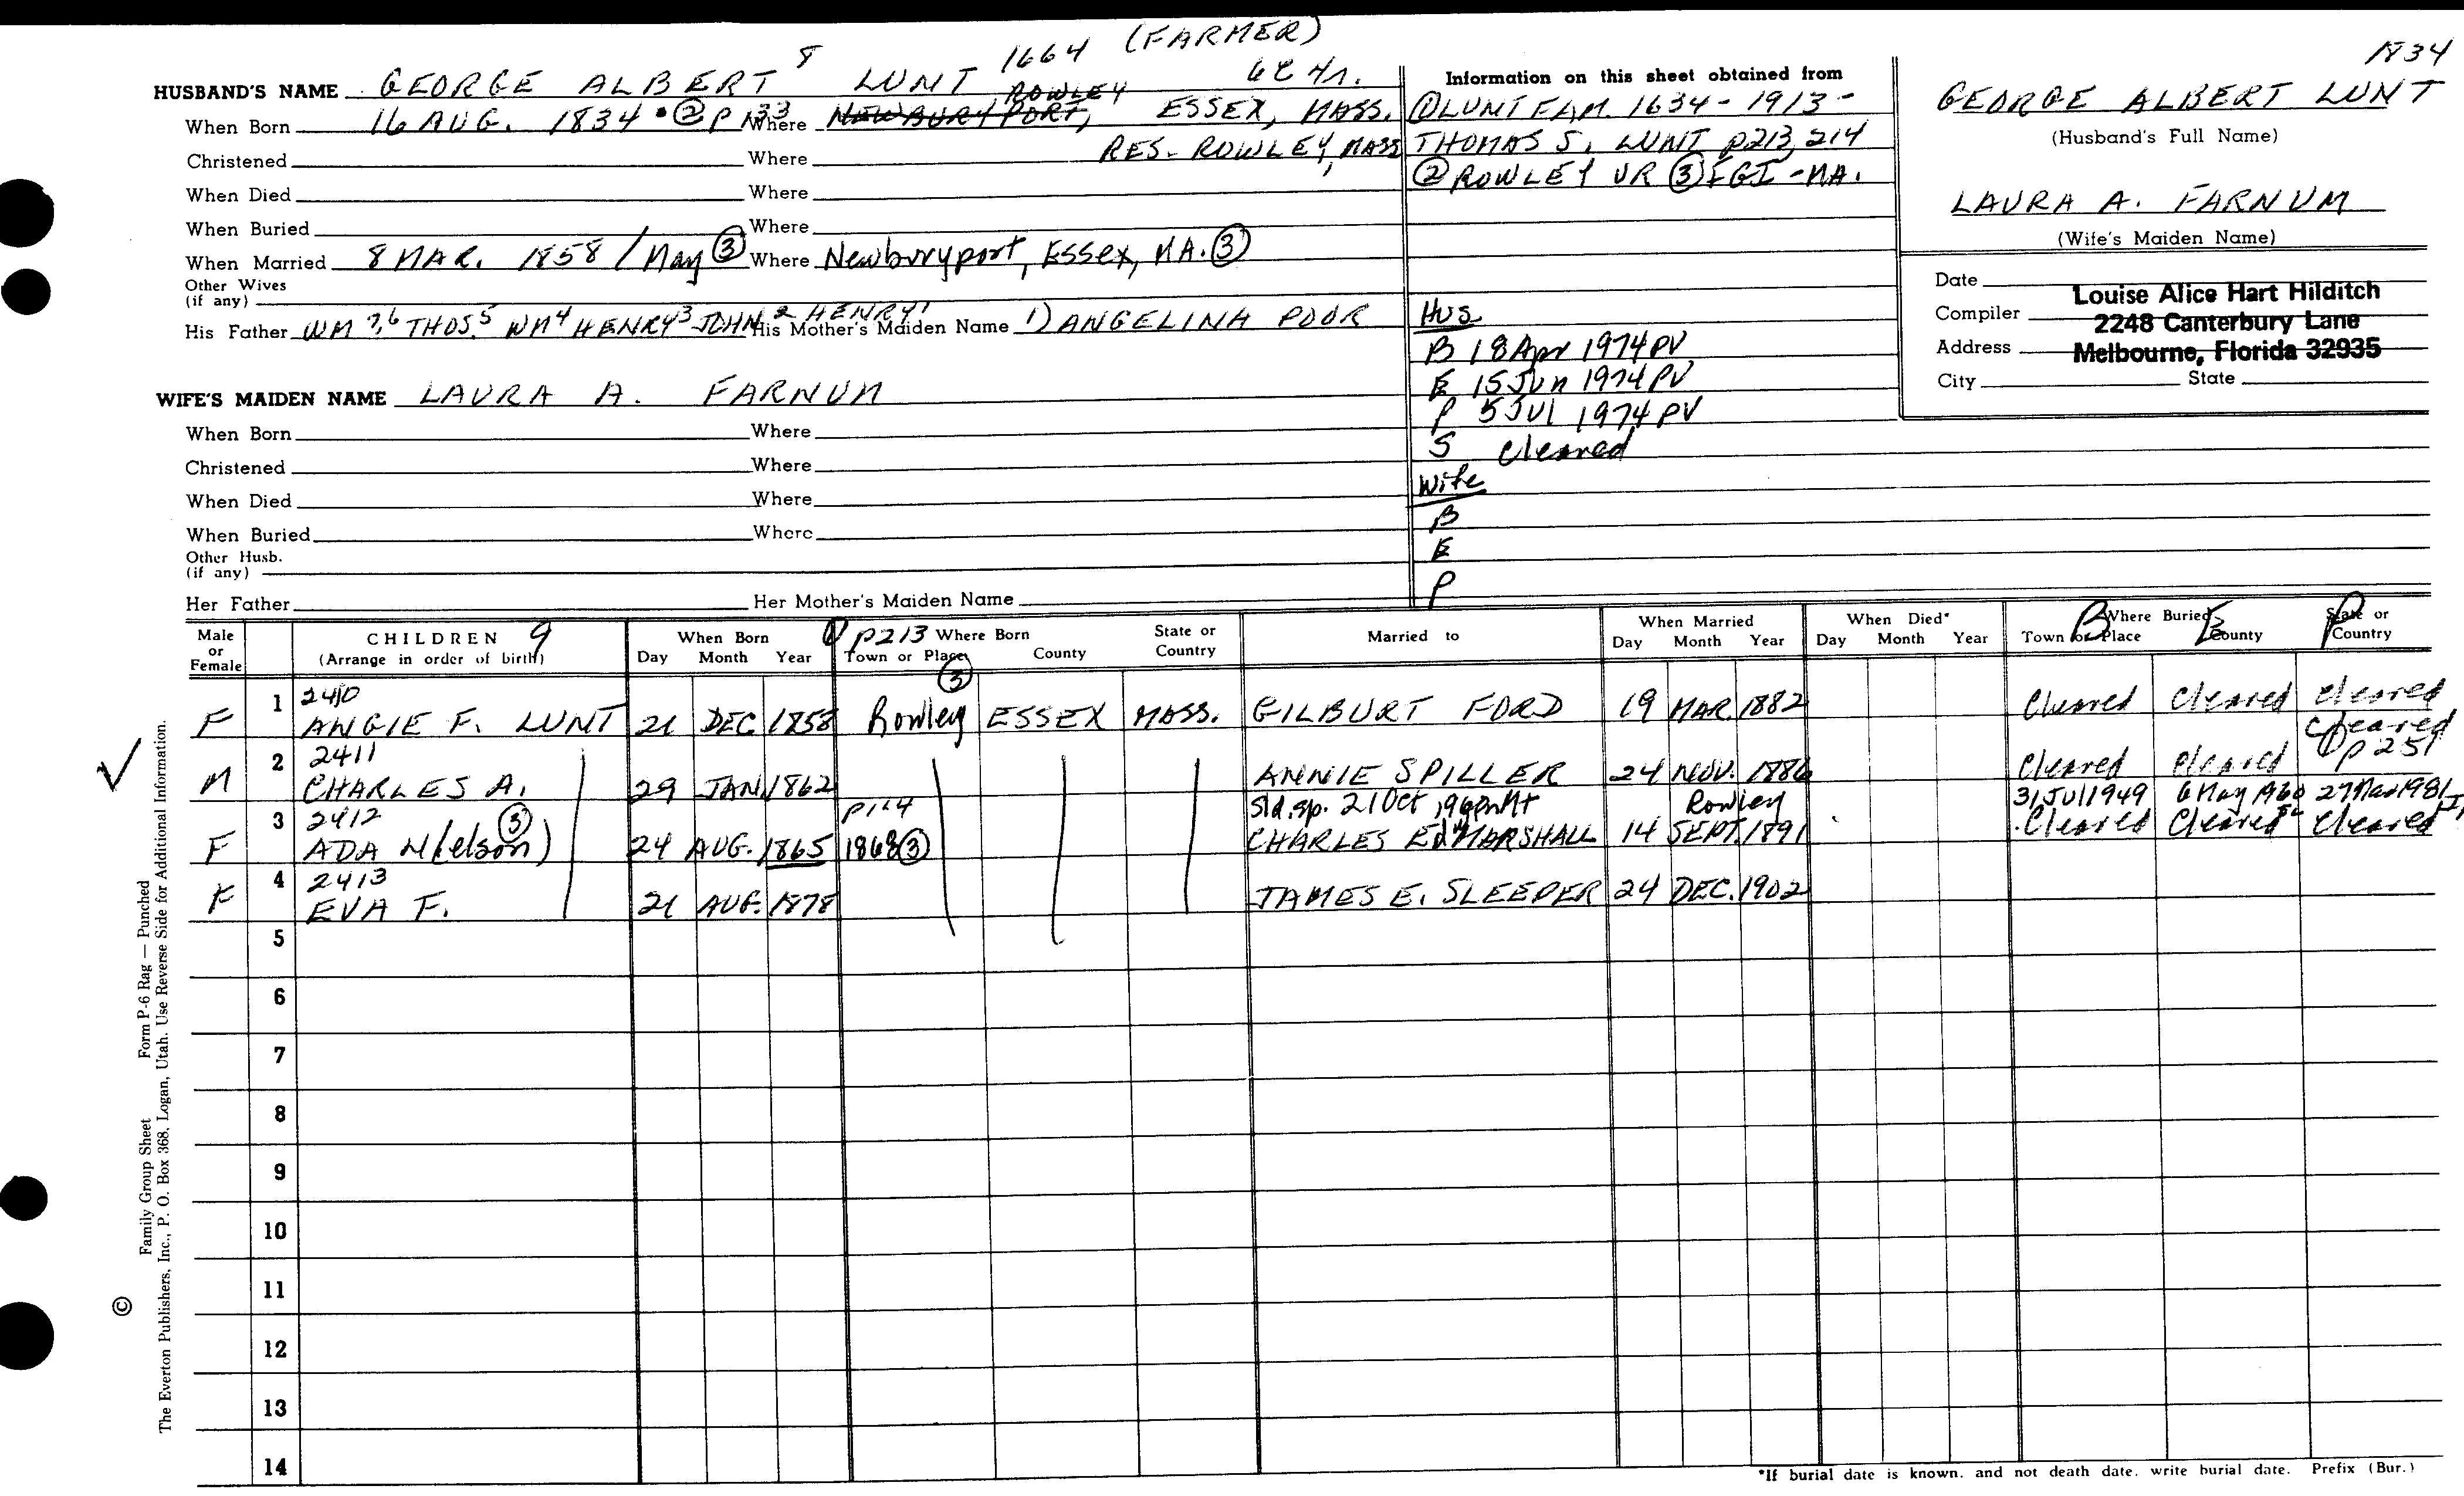 1664 (FARMER)
1834
HUSBAND'S NAME GEORGE ALBERT 8 LUNT
When Born 16 AUG. 1834 • ② P 133 Where NEWBURYPORT, ROWLEY ESSEX, MASS.
Christened Where RES- ROWLEY, MASS
When Died Where
When Buried Where
When Married 8 MAR. 1858 / May ③ Where Newburyport, Essex, MA. ③
Other Wives
(if any)
His Father WM 7,6 THOS.5 WM4 HENRY3 JOHN2 HENRY1 His Mother's Maiden Name 1) ANGELINA POOR
WIFE'S MAIDEN NAME LAURA A. FARNUM
When Born Where
Christened Where
When Died Where
When Buried Where
Other Husb.
(if any)
Her Father Her Mother's Maiden Name
Information on this sheet obtained from
① LUNT FAM. 1634-1913-
THOMAS S. LUNT p213, 214
② ROWLEY VR ③ IGI - MA.
Hus
B 18 Apr 1974 PV
E 15 Jun 1974 PV
P 5 Jul 1974 PV
S Cleared
Wife
B
E
P
GEORGE ALBERT LUNT
(Husband's Full Name)
LAURA A. FARNUM
(Wife's Maiden Name)
Date
Compiler Louise Alice Hart Hilditch
Address 2248 Canterbury Lane
Melbourne, Florida 32935
City State
Male or Female CHILDREN 9 (Arrange in order of birth) When Born Day Month Year ① p213 Where Born Town or Place County State or Country Married to When Married Day Month Year When Died* Day Month Year Where Buried Town or Place County State or Country B E P
③
1 2410
F ANGIE F. LUNT 21 DEC 1858 Rowley ESSEX MASS. GILBURT FORD 19 MAR 1882 Cleared Cleared Cleared
2 2411 Cleared
M CHARLES A. 29 JAN. 1862 ANNIE SPILLER 24 NOV. 1886 Cleared Cleared ① p 251
3 2412 ③ p164 Sld. sp. 21 Oct Rowley 31 Jul 1949 6 May 1960 27 Mar 1981
F ADA N(elson) 24 AUG. 1865 1868 ③ CHARLES Ed MARSHALL 14 SEPT. 1891 Cleared Cleared Cleared
4 2413
F EVA F. 21 AUG. 1878 JAMES E. SLEEPER 24 DEC. 1902
5
6
7
8
9
10
11
12
13
14
*If burial date is known, and not death date, write burial date. Prefix (Bur.)
© Family Group Sheet Form P-6 Rag — Punched
The Everton Publishers, Inc., P. O. Box 368, Logan, Utah. Use Reverse Side for Additional Information.